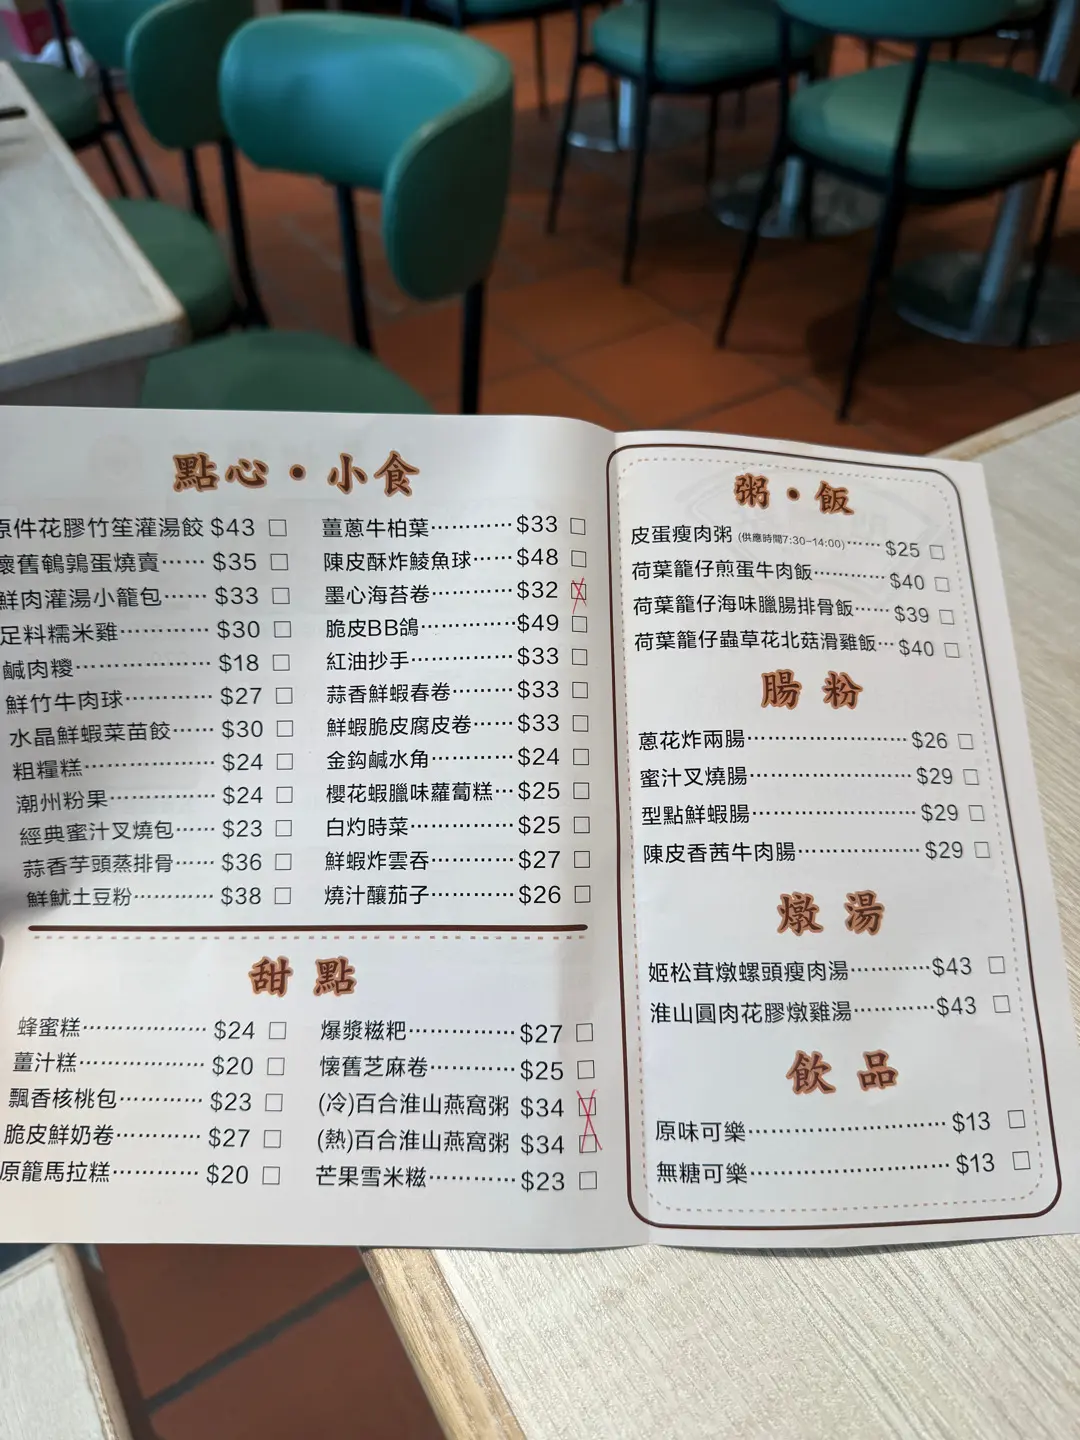 點心・小食
原件花膠竹笙灌湯餃 $43
懷舊鵪鶉蛋燒賣 $35
鮮肉灌湯小籠包 $33
足料糯米雞 $30
鹹肉糭 $18
鮮竹牛肉球 $27
水晶鮮蝦菜苗餃 $30
粗糧糕 $24
潮州粉果 $24
經典蜜汁叉燒包 $23
蒜香芋頭蒸排骨 $36
鮮魷土豆粉 $38
薑蔥牛柏葉 $33
陳皮酥炸鯪魚球 $48
墨心海苔卷 $32
脆皮BB鴿 $49
紅油抄手 $33
蒜香鮮蝦春卷 $33
鮮蝦脆皮腐皮卷 $33
金鈎鹹水角 $24
櫻花蝦臘味蘿蔔糕 $25
白灼時菜 $25
鮮蝦炸雲吞 $27
燒汁釀茄子 $26
甜點
蜂蜜糕 $24
薑汁糕 $20
飄香核桃包 $23
脆皮鮮奶卷 $27
原籠馬拉糕 $20
爆漿糍粑 $27
懷舊芝麻卷 $25
(冷)百合淮山燕窩粥 $34
(熱)百合淮山燕窩粥 $34
芒果雪米糍 $23
粥・飯
皮蛋瘦肉粥 (供應時間7:30-14:00) $25
荷葉籠仔煎蛋牛肉飯 $40
荷葉籠仔海味臘腸排骨飯 $39
荷葉籠仔蟲草花北菇滑雞飯 $40
腸粉
蔥花炸兩腸 $26
蜜汁叉燒腸 $29
型點鮮蝦腸 $29
陳皮香茜牛肉腸 $29
燉湯
姬松茸燉螺頭瘦肉湯 $43
淮山圓肉花膠燉雞湯 $43
飲品
原味可樂 $13
無糖可樂 $13